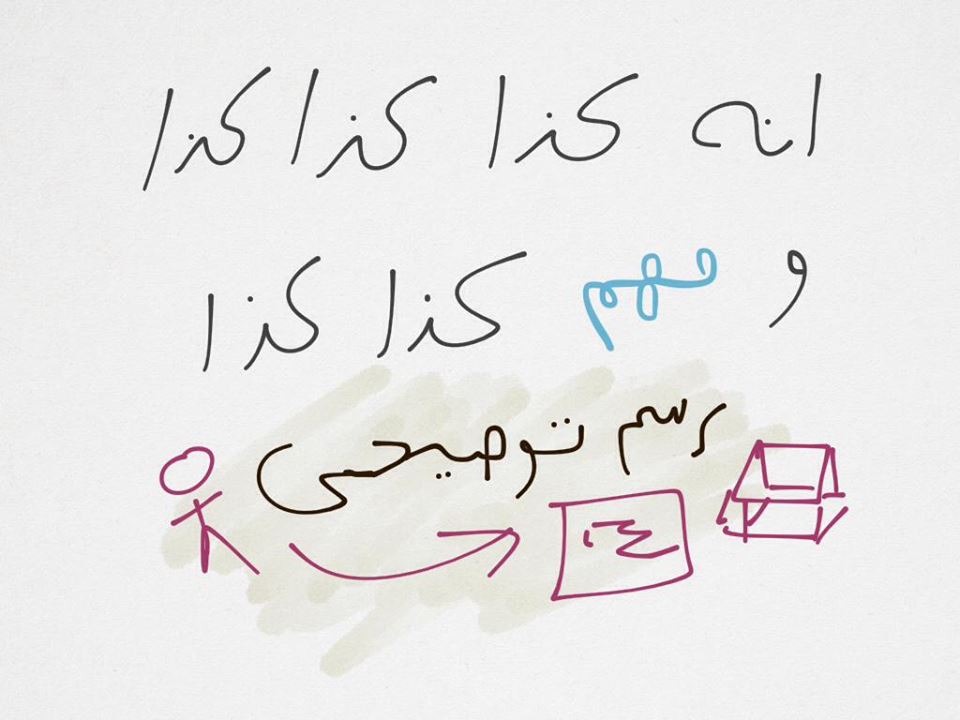 انه كذا كذا كذا
و مهم كذا كذا
رسم توضيحي